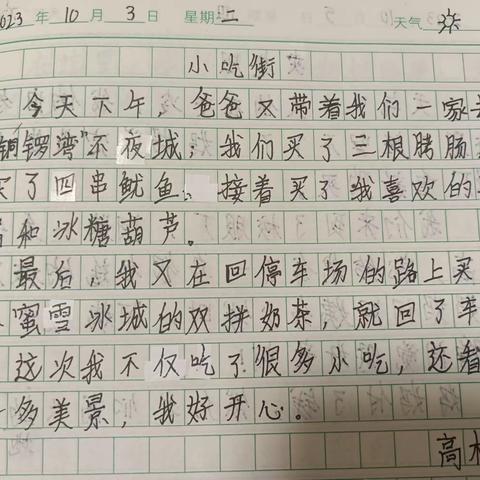 023年10月3日 星期二 天气
小吃街
今天下午,爸爸又带着我们一家
铜锣湾"不夜城;我们买了三根烤肠
了四串鱿鱼,接着买了我喜欢的
和冰糖葫芦。
最后,我又在回停车场的路上买
蜜雪冰城的双拼奶茶,就回了车
这次我不仅吃了很多小吃,还看
多美景,我好开心。
高